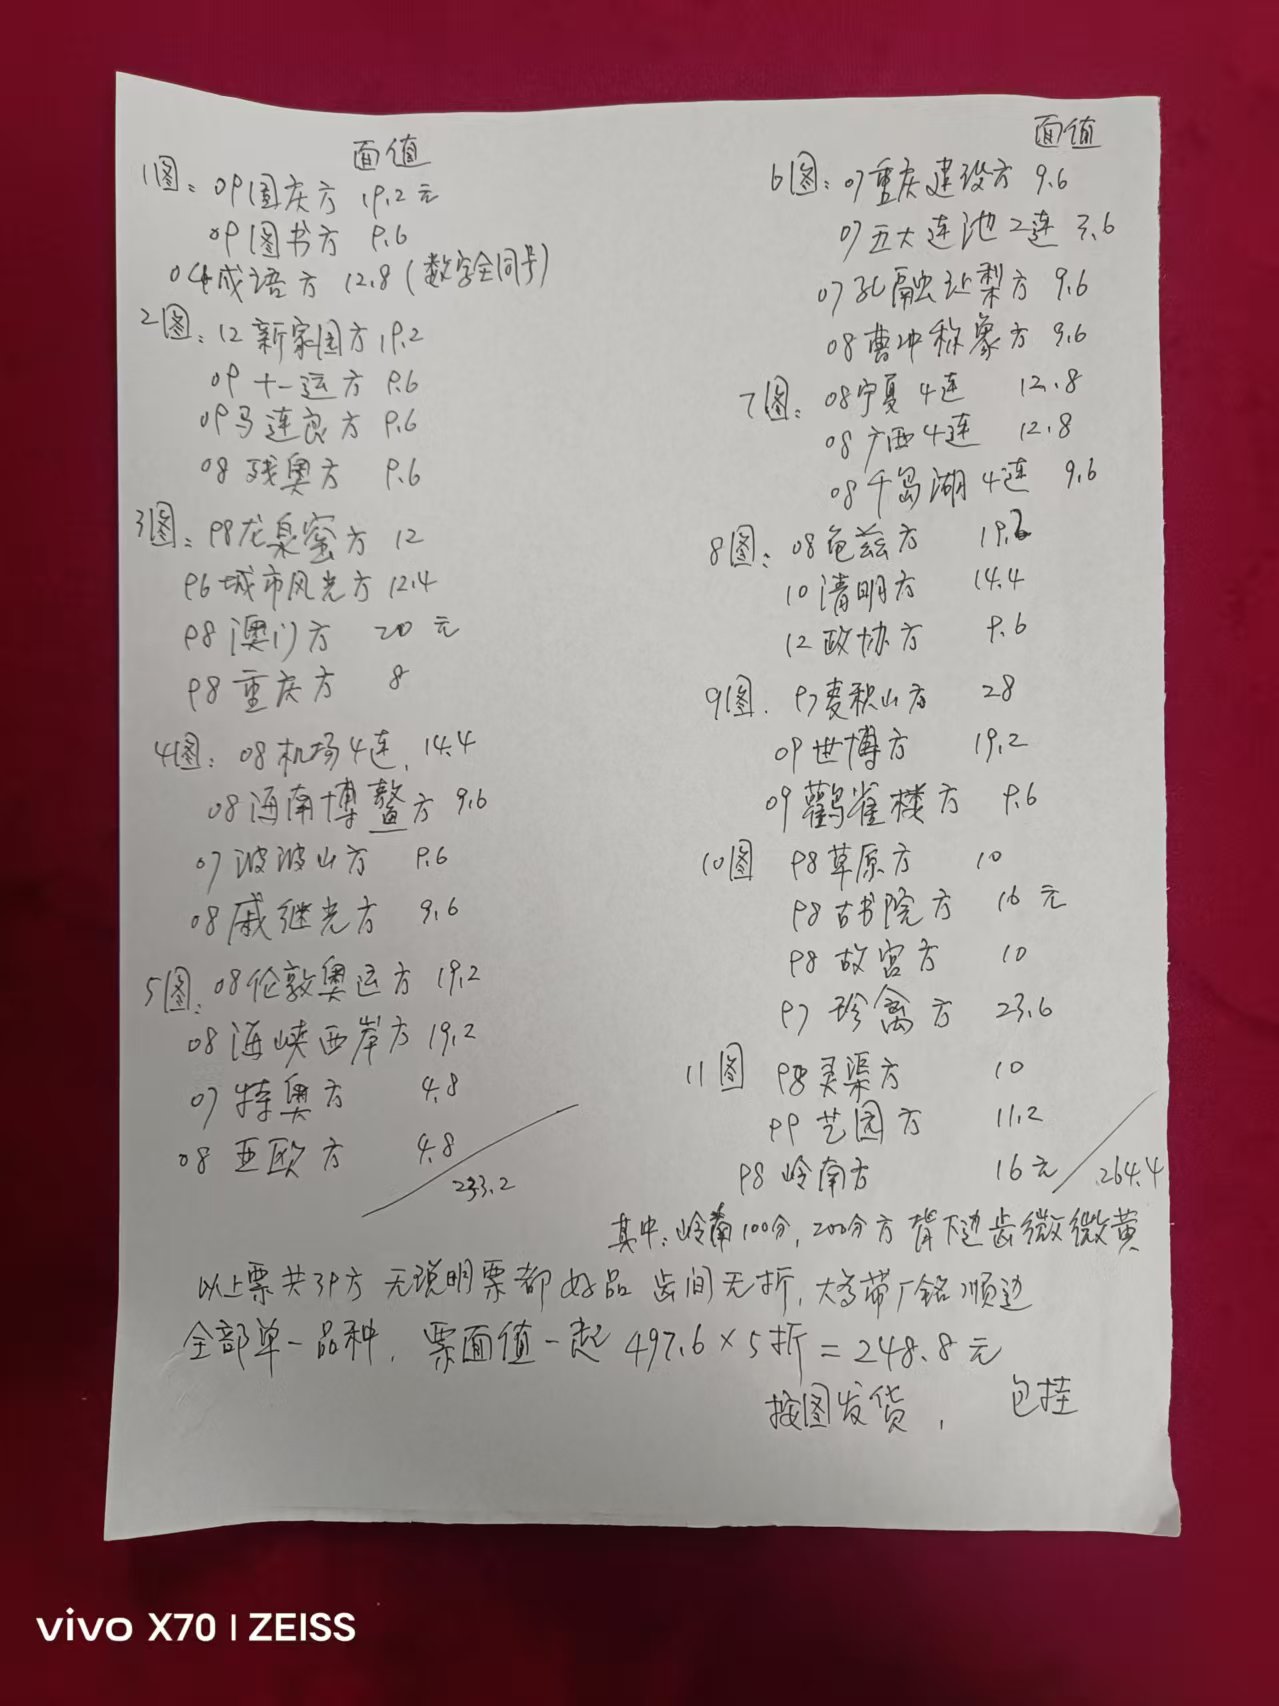 面值
1图: 09国庆方 19.2元
09图书方 9.6
04成语方 12.8 (数字全同号)
2图: 12新家园方 19.2
09十一运方 9.6
09马连良方 9.6
08残奥方 9.6
3图: 98龙泉窑方 12
96城市风光方 12.4
98澳门方 20元
98重庆方 8
4图: 08机场4连. 14.4
08海南博鳌方 9.6
07波波山方 9.6
08戚继光方 9.6
5图: 08伦敦奥运方 19.2
08海峡西岸方 19.2
07特奥方 4.8
08亚欧方 4.8
233.2
面值
6图: 07重庆建设方 9.6
07五大连池2连 3.6
07孔融让梨方 9.6
08曹冲称象方 9.6
7图: 08宁夏4连 12.8
08广西4连 12.8
08千岛湖4连 9.6
8图: 08龟兹方 19.2
10清明方 14.4
12政协方 9.6
9图. 97麦积山方 28
09世博方 19.2
09鹳雀楼方 9.6
10图 98草原方 10
98古书院方 16元
98故宫方 10
97珍禽方 23.6
11图 98灵渠方 10
99艺园方 11.2
98岭南方 16元 264.4
其中: 岭南100分, 200分方背下边齿微微黄
以上票共39方 无说明票都好品 齿间无折, 大多带厂铭顺边
全部单一品种, 票面值一起 497.6×5折=248.8元
按图发货, 包挂
vivo X70 | ZEISS